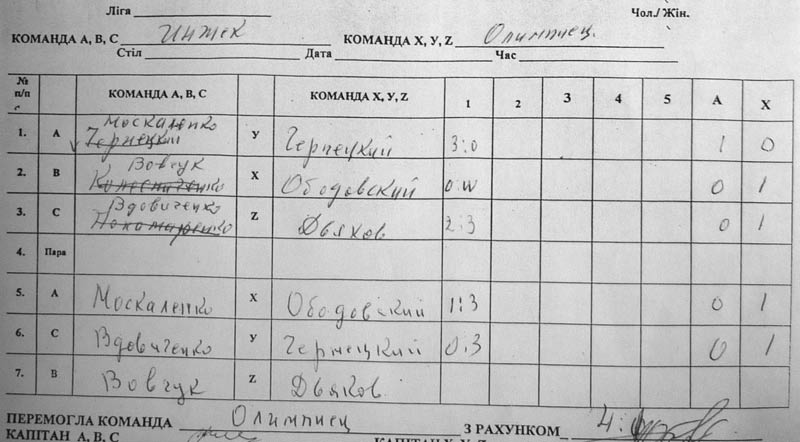 Ліга Чол./ Жін.
КОМАНДА А, В, С Инжек КОМАНДА Х, У, Z Олимпиец
Стіл Дата Час
№ п/п КОМАНДА А, В, С КОМАНДА Х, У, Z 1 2 3 4 5 А Х
Москаленко
1. А Чернецкий У Чернецкий 3:0 1 0
Вовчук
2. В Колесниченко Х Ободовский 0:W 0 1
Вдовиченко
3. С Пономаренко Z Дьяков 2:3 0 1
4. Пара
5. А Москаленко Х Ободовский 1:3 0 1
6. С Вдовиченко У Чернецкий 0:3 0 1
7. В Вовчук Z Дьяков
ПЕРЕМОГЛА КОМАНДА Олимпиец З РАХУНКОМ 4:
КАПІТАН А, В, С КАПІТАН Х, У, Z